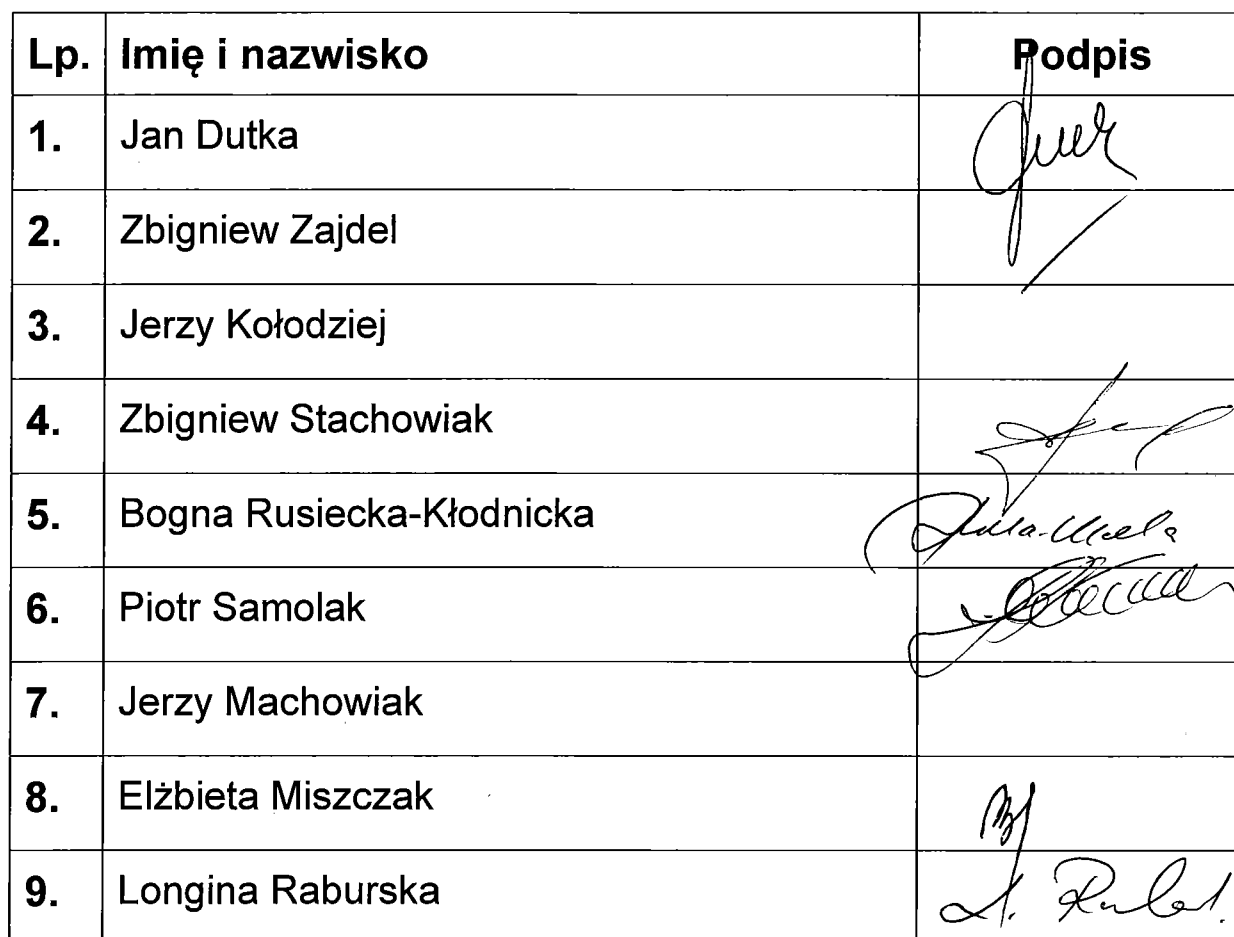 Lp. Imię i nazwisko Podpis
1. Jan Dutka
2. Zbigniew Zajdel
3. Jerzy Kołodziej
4. Zbigniew Stachowiak
5. Bogna Rusiecka-Kłodnicka
6. Piotr Samolak
7. Jerzy Machowiak
8. Elżbieta Miszczak
9. Longina Raburska